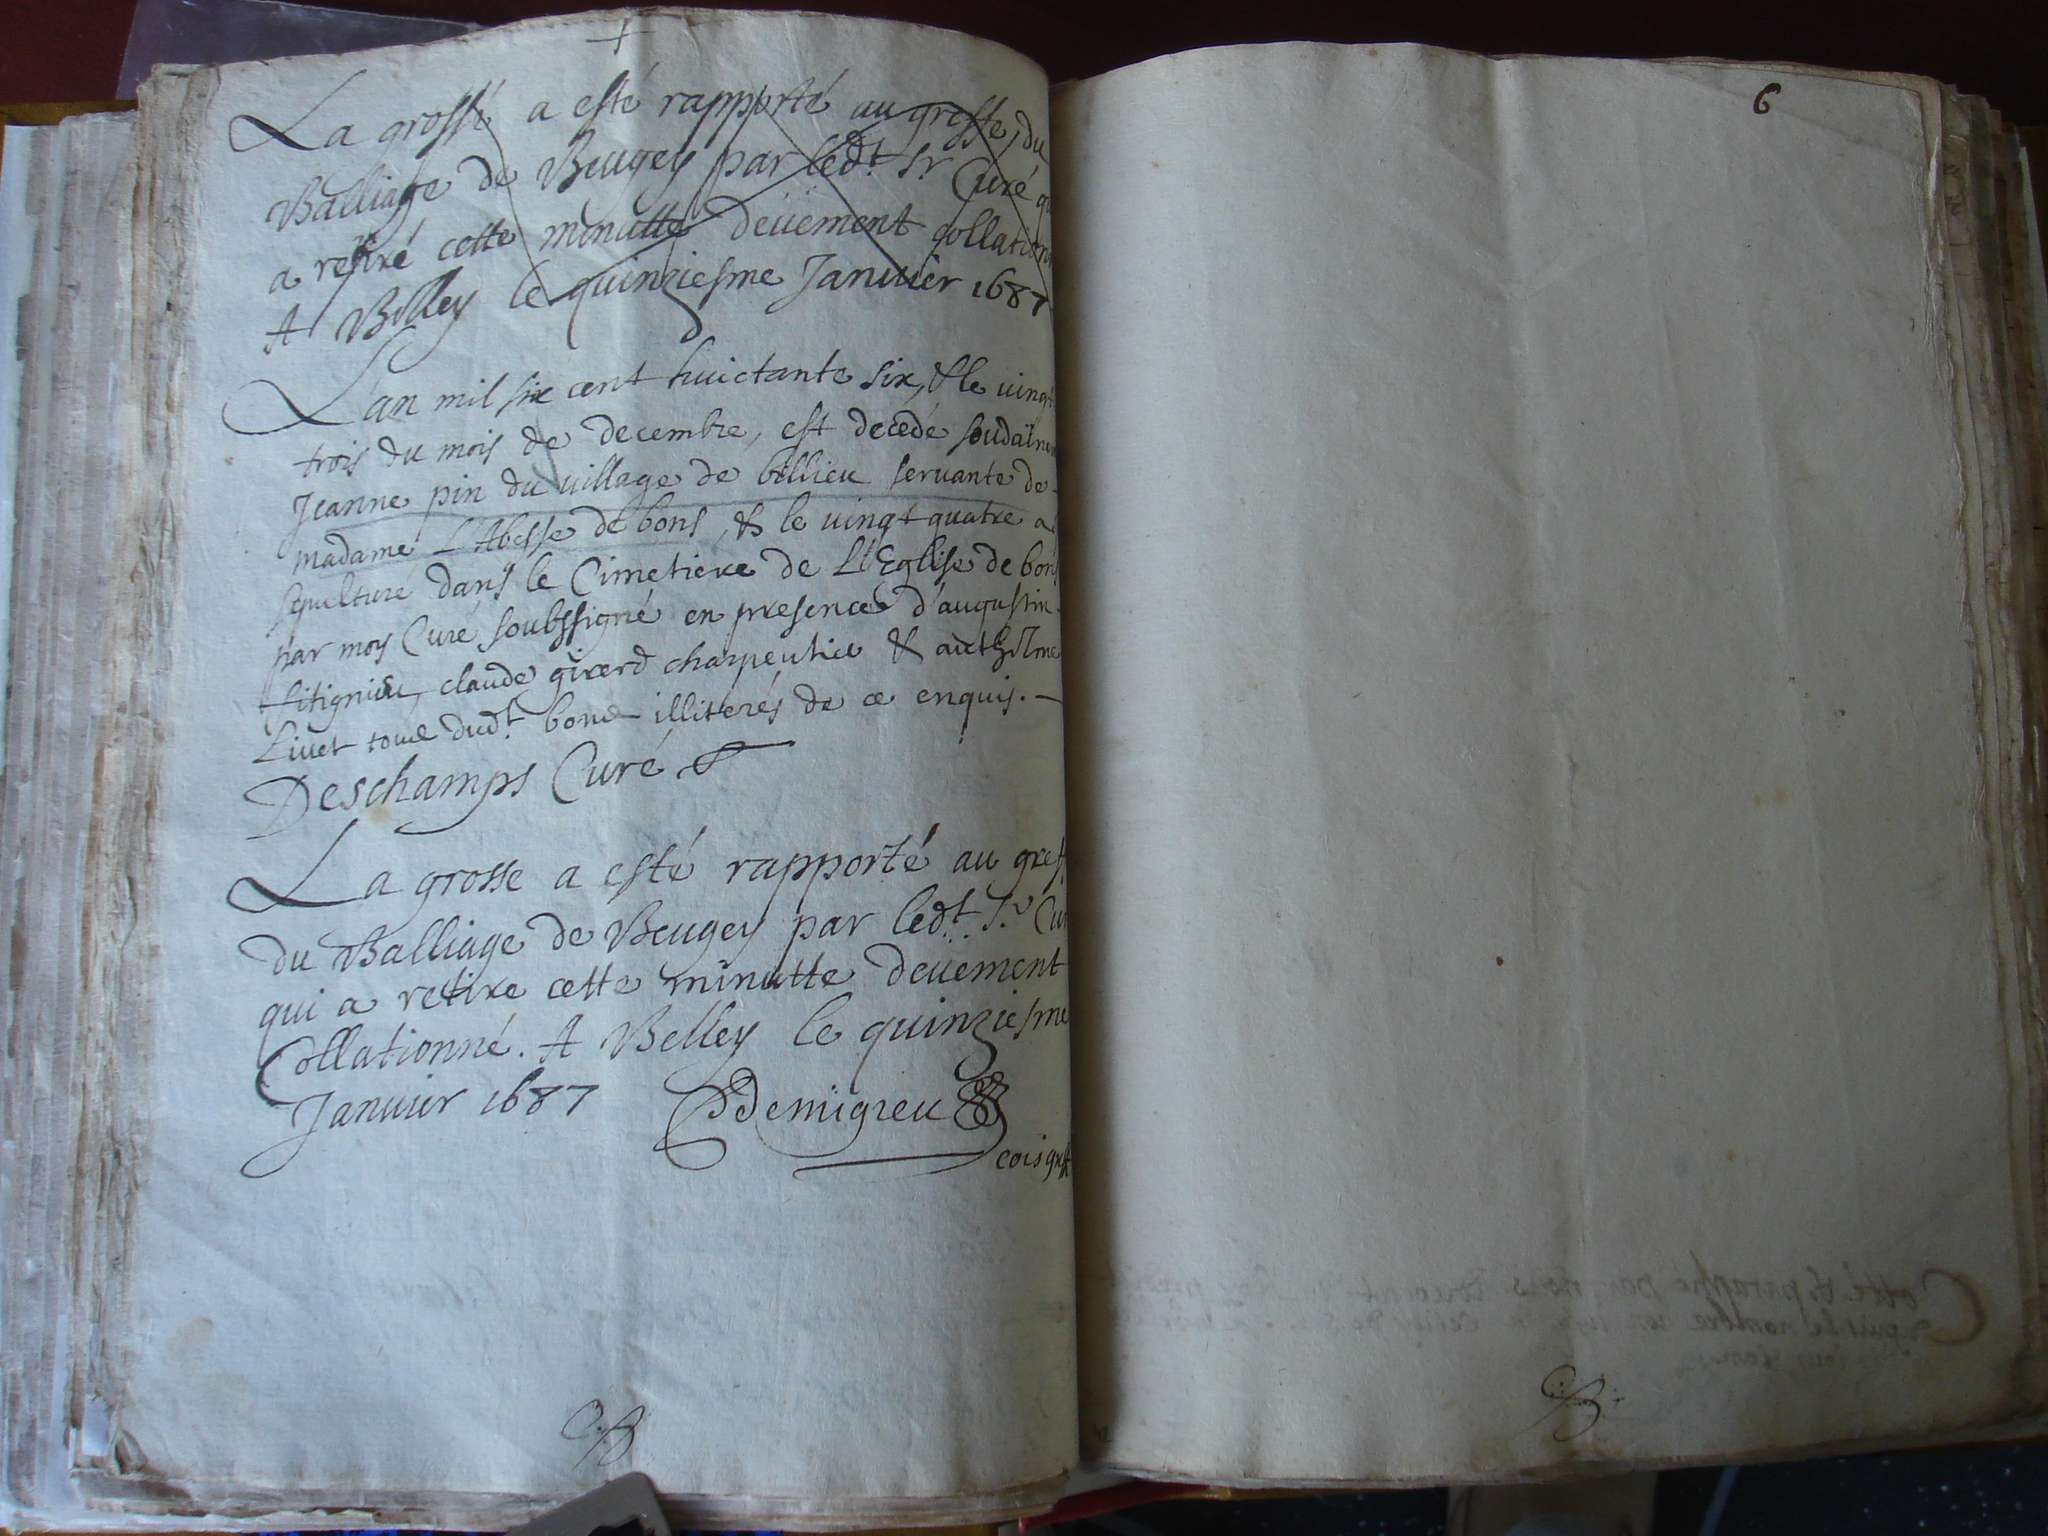 La grosse a esté rapporté au greffe, du
Balliage de Beugey par ledt. Sr. Curé
a retiré cette minutte deüement
A Belley le quinziesme Januier 1687
L'an mil six cent huictante six, & le uingt
trois du mois de decembre, est decedé
Jeanne pin du uillage de billieu seruante de
madame L'Abesse de bons, & le uingt quatre
sepulture dans le Cimetiere de L'Eglise de bons
par moy Curé soubssigné en presence d'augustin
claude girerd charpentier & anthelme
Liuet dudt. illiterés de ce enquis.
Deschamps Curé
La grosse a esté rapporté au
du Balliage de Beugey par ledt. Sr
qui a retire cette minutte deuement
Collationné. A Belley le quinziesme
Januier 1687 Demigieu
6